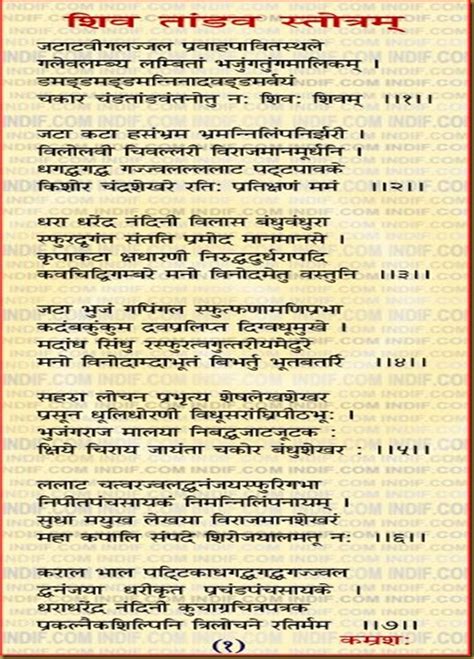 शिव तांडव स्तोत्रम्
जटाटवीगलज्जल प्रवाहपावितस्थले
गलेवलम्ब्य लम्बितां भजुंगतुंगमालिकम् ।
डमड्डमड्डमन्निनादवड्डमर्वयं
चकार चंडतांडवंतनोतु नः शिवः शिवम् ॥१॥
जटा कटा हसंभ्रम भ्रमन्निलिंपनिर्झरी ।
विलोलवी चिवल्लरी विराजमानमूर्धनि ।
धगद्धगद्ध गज्ज्वलल्ललाट पट्टपावके
किशोर चंद्रशेखरे रतिः प्रतिक्षणं ममं ॥२॥
धरा धरेंद्र नंदिनी विलास बंधुवंधुरा
स्फुरदृगंत संतति प्रमोद मानमानसे ।
कृपाकटा क्षधारणी निरुद्धदुर्धरापदि
कवचिद्विगम्बरे मनो विनोदमेतु वस्तुनि ॥३॥
जटा भुजं गपिंगल स्फुरत्फणामणिप्रभा
कदंबकुंकुम द्रवप्रलिप्त दिग्वधूमुखे ।
मदांध सिंधु रस्फुरत्वगुत्तरीयमेदुरे
मनो विनोदाम्दाभूतं बिभर्तु भूतबर्तारि ॥४॥
सहठा लोचन प्रभृत्य शेषलेखशेखर
प्रसून धूलिधोरणी विधूसरांध्रिपीठभूः ।
भुजंगराज मालया निबद्धजाटजूटक :
क्षिये चिराय जायंता चकोर बंधुशेखरः ॥५॥
ललाट चत्वरज्वलद्धनंजयस्फुरिगभा
निपीतपंचसायकं निमन्निलिंपनायम् ।
सुधा मयुख लेखया विराजमानशेखरं
महा कपालि संपदे शिरोजयालमतू नः ॥६॥
कराल भाल पट्टिकाधगद्धगद्धगज्ज्वल
द्धनंजया धरीकृत प्रचंडपंचसायके ।
धराधरेंद्र नंदिनी कुचाग्रचित्रपत्रक
प्रकल्नैकशिल्पिनि त्रिलोचने रतिर्मम ॥७॥
(१) कमशः